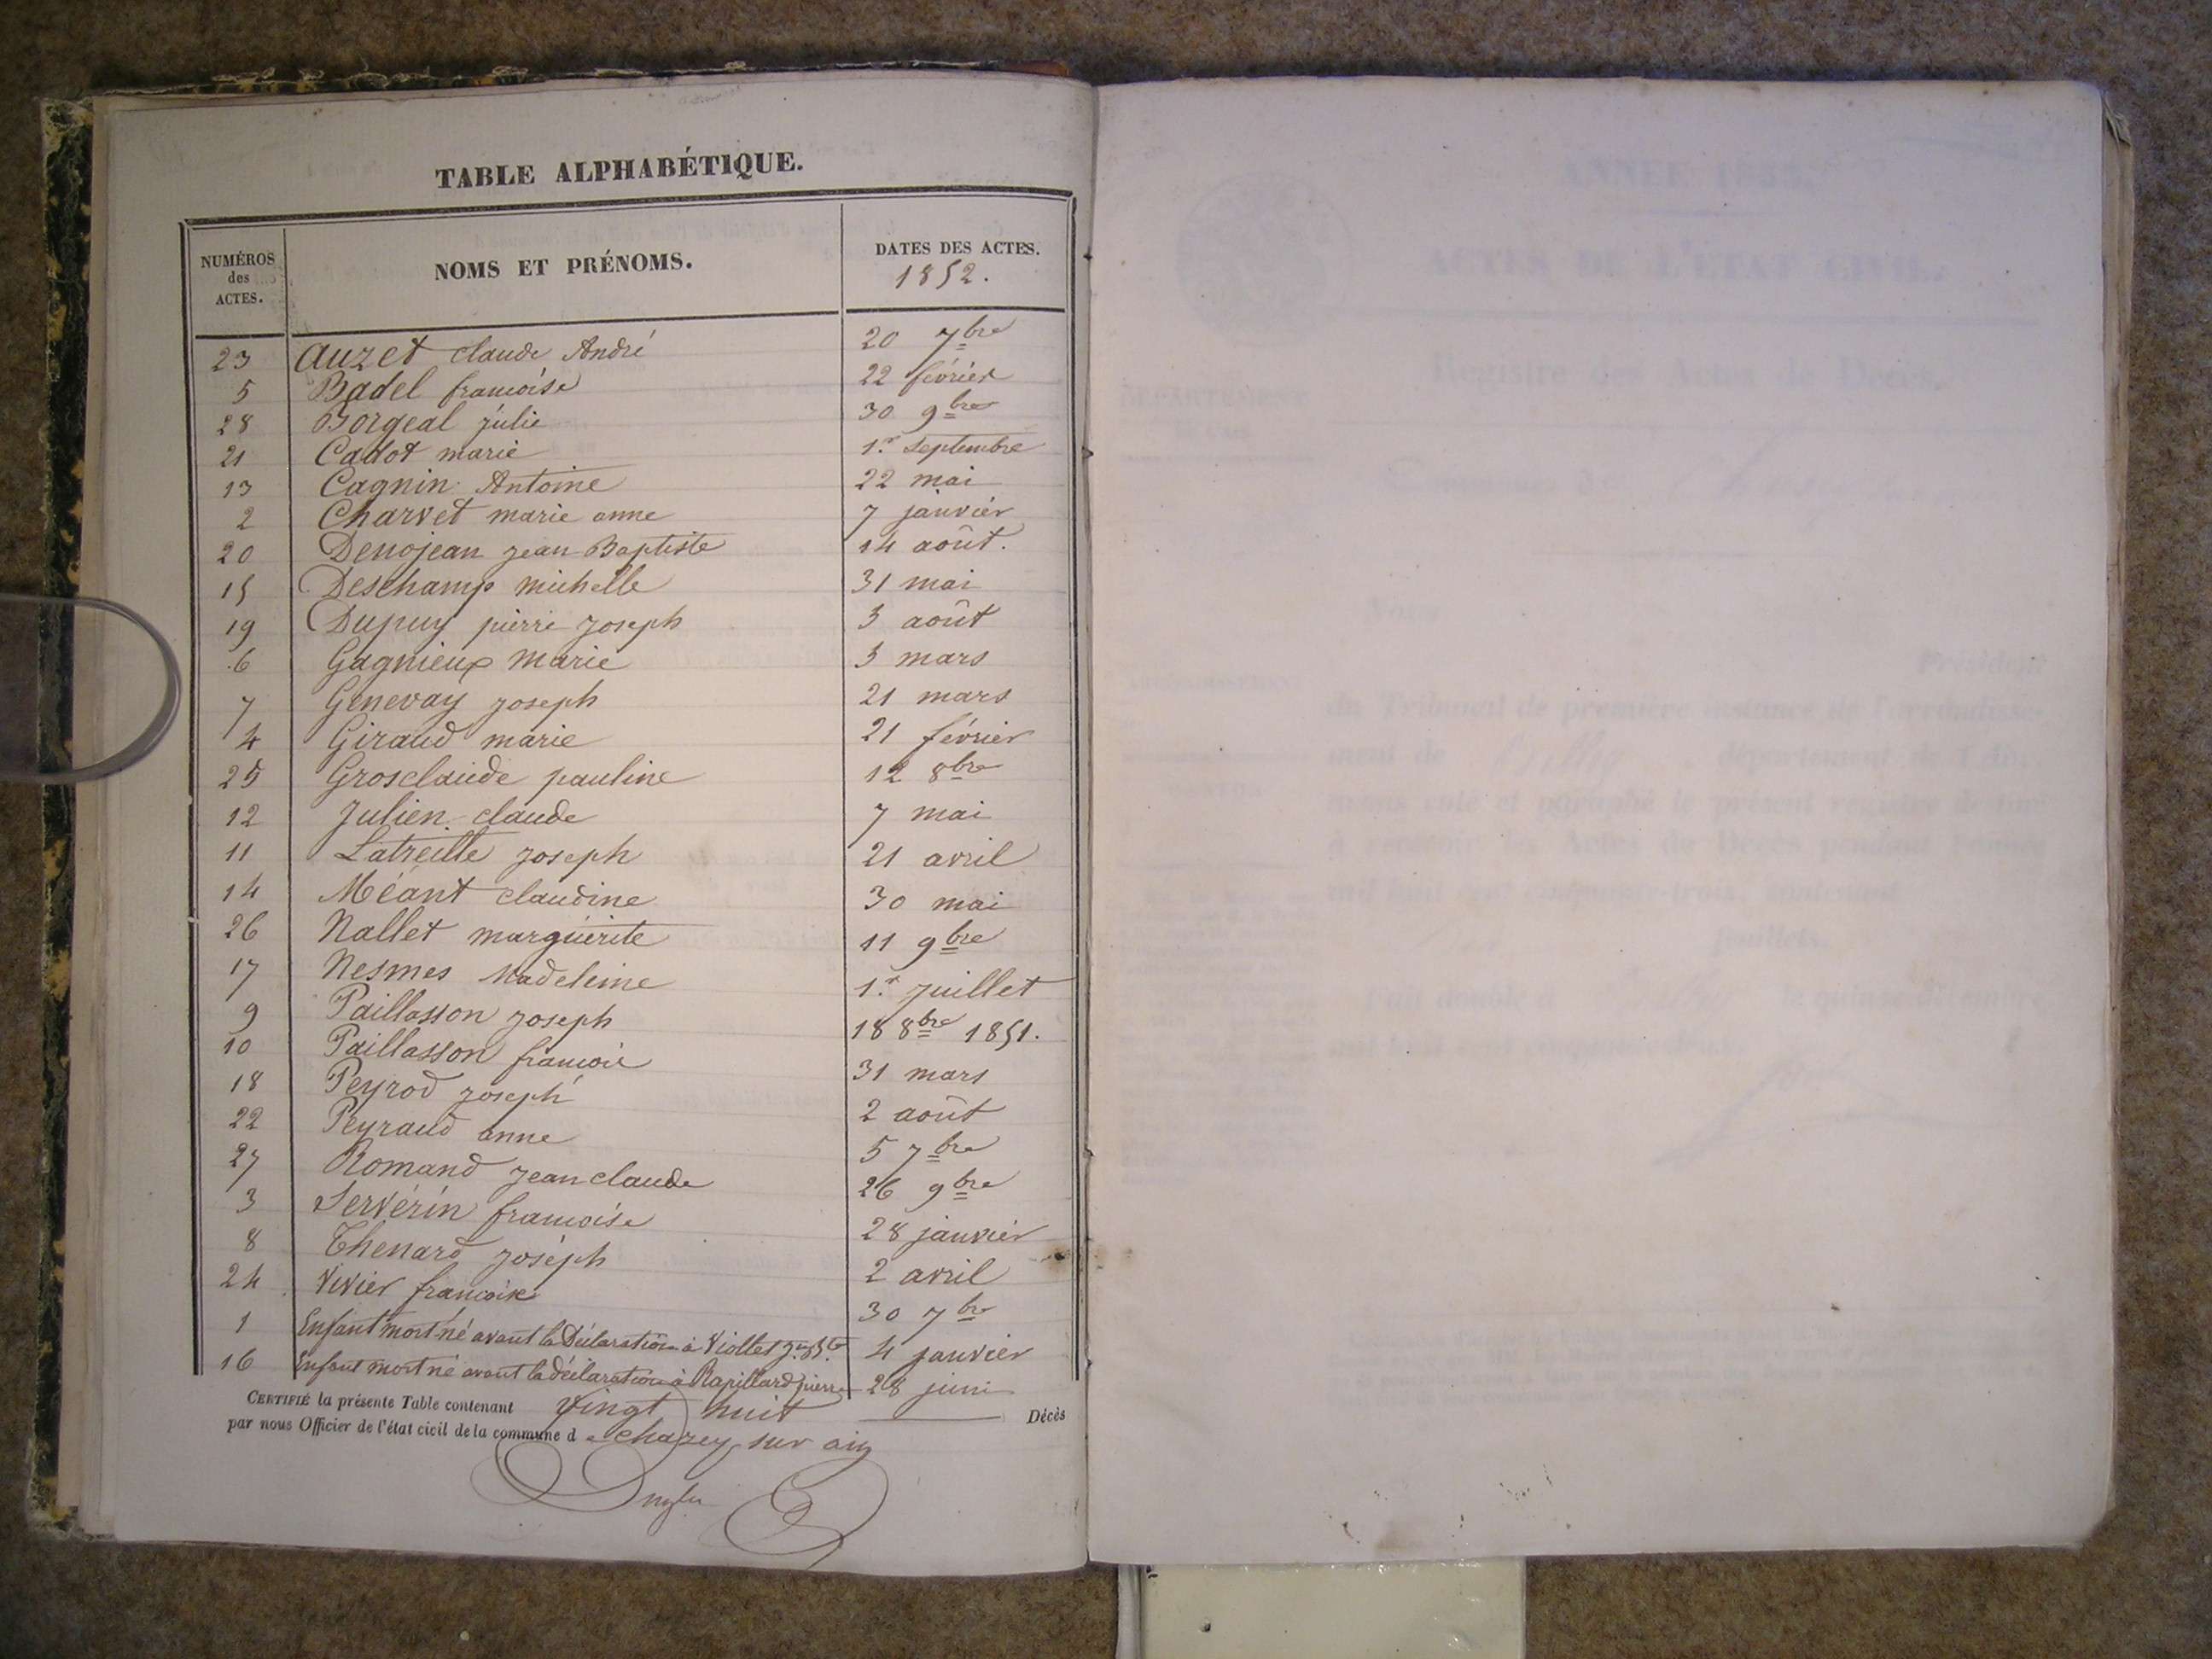 TABLE ALPHABÉTIQUE.
NUMÉROS des ACTES. NOMS ET PRÉNOMS. DATES DES ACTES. 1852.
23 Auzet claude André 20 7bre
5 Badel francoise 22 février
28 Borgeal julie 30 9bre
21 Cadot marie 1er Septembre
13 Cagnin Antoine 22 mai
2 Charvet marie anne 7 janvier
20 Denojean jean Baptiste 14 août.
15 Deschamp michelle 31 mai
19 Dupuy pierre joseph 3 août
6 Gagnieux marie 3 mars
7 Genevay joseph 21 mars
4 Giraud marie 21 février
25 Grosclaude pauline 12 8bre
12 Julien claude 7 mai
11 Latreille joseph 21 avril
14 Méant claudine 30 mai
26 Nallet marguerite 11 9bre
17 Nesmes Madeleine 1er juillet
9 Paillasson joseph 18 8bre 1851.
10 Paillasson francois 31 mars
18 Peyrod joseph 2 août
22 Peyraud anne 5 7bre
27 Romand jean claude 26 9bre
3 Servérin francoise 28 janvier
8 Thenard joseph 2 avril
24 Vivier francoise 30 7bre
1 Enfant mort né avant la Déclaration à Viollet 4 janvier
16 Enfant mort né avant la déclaration à Rapillard pierre 28 juin
CERTIFIÉ la présente Table contenant vingt huit Décès
par nous Officier de l'état civil de la commune de chazey sur ain
ANNÉE 1853.
ACTES DE L'ÉTAT CIVIL.
Registre des Actes de Décès.
DÉPARTEMENT
Commune de
Nous
Président
du Tribunal de première instance de l'arrondisse-
ment de département de l'Ain,
avons coté et paraphé le présent registre destiné
à recevoir les Actes de Décès pendant l'année
mil huit cent cinquante-trois, contenant
feuillets.
Fait double à le quinze décembre
mil huit cent cinquante-deux.